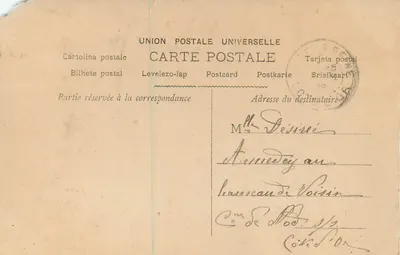 UNION POSTALE UNIVERSELLE
CARTE POSTALE
Cartolina postale Tarjeta postal
Bilhete postal Levelezo-lap Postcard Postkarte Briefkaart
Partie réservée à la correspondance Adresse du destinataire
Mlle Désiré
hameau de Voisin
Cne de
Côte d'Or